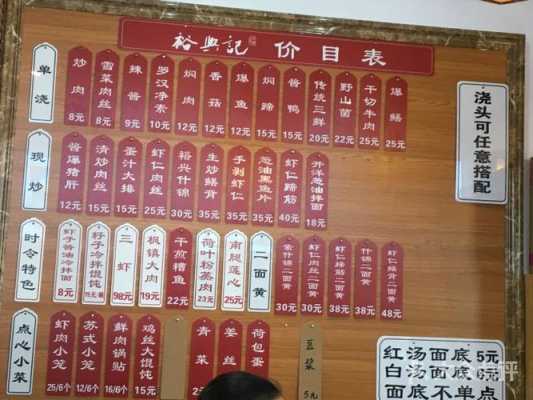 裕兴記 价目表
单浇
炒肉 8元
雪菜肉丝 8元
辣酱 9元
罗汉净素 10元
焖肉 12元
香菇 12元
爆鱼 12元
焖蹄 15元
酱鸭 15元
传统三鲜 20元
野山菌 22元
干切牛肉 25元
爆鳝 25元
浇头可任意搭配
现炒
酱爆猪肝 12元
清炒肉丝 15元
蛋汁大排 15元
虾仁肉丝 25元
裕兴什锦 30元
生炒鳝背 35元
手剥虾仁 35元
葱油黑鱼片 35元
虾仁蹄筋 40元
开洋葱油拌面 18元
时令特色
虾子酱油冷拌面 8元
籽子冷拌馄饨
三虾 98元
枫镇大肉 19元
干煎糟鱼 22元
荷叶粉蒸肉 23元
南腿莲心 25元
二面黄
素什锦二面黄 30元
虾仁肉丝二面黄 30元
虾仁蹄筋二面黄 38元
什锦二面黄 38元
虾仁鳝背二面黄 48元
点心小菜
虾肉小笼 25/6个
苏式小笼 12/6个
鲜肉锅贴 16/6个
鸡丝大馄饨 15元
青菜
姜丝
荷包蛋
豆浆 5元
红汤面底 5元
白汤面底
面底不单点